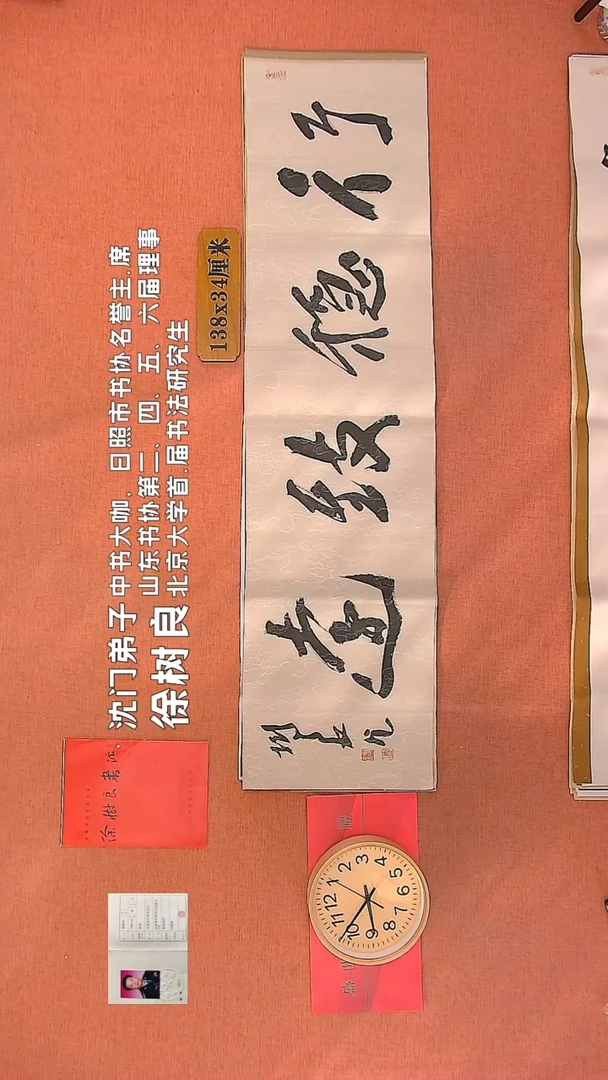 沈门弟子
徐树良
中书大咖、日照市书协名誉主席
山东书协第三、四、五、六届理事
北京大学首届书法研究生
138x34厘米
行穩致遠
徐树良书法
12
1
2
3
4
5
6
7
8
9
10
11